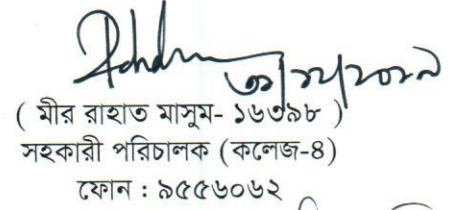 ( মীর রাহাত মাসুম- ১৬৩৯৮ )
সহকারী পরিচালক (কলেজ-৪)
ফোন : ৯৫৫৬০৬২